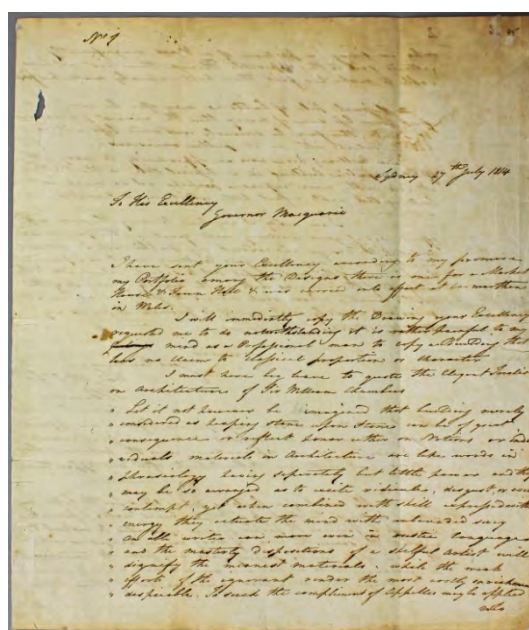 No 1
Sydney 27th July 1814
To His Excellency
Governor Macquarie
I have sent your Excellency according to my promise
my Portfolio among the Designs there is one for a Market
House & Town Hall & was carried into effect at
in Wales.
I will immediately copy the Drawing your Excellency
requested me to do notwithstanding it is rather painful to my
mind as a Professional man to copy a Building that
has no claims to classical proportion or character
I must here beg leave to quote the elegant
on Architecture of Sir William Chambers
" Let it not however be imagined that building merely
" considered as heaping stone upon stone can be of great
" consequence or reflect honor either on Nations or
" materials in Architecture are like words in
" Phraseology having separately but little power and they
" may be so arranged as to excite ridicule, disgust, or even
" contempt, yet when combined with skill expressed with
" energy they actuate the mind with unbounded sway
" an able writer can move even in rustic language
" and the masterly dispositions of a skilful artist will
" dignify the meanest materials, while the weak
" efforts of the ignorant render the most costly
" despicable. To such the compliment of Appelles may be applied
who